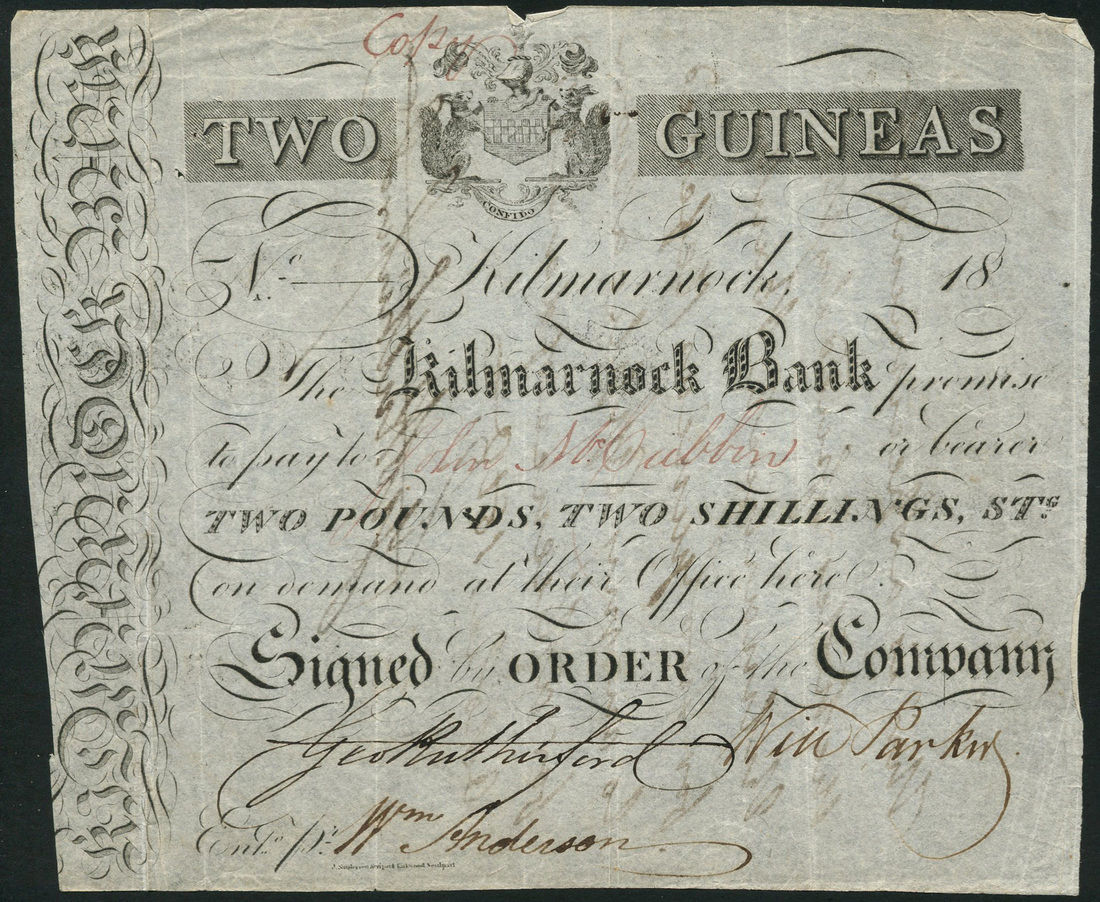 Copy
TWO GUINEAS
CONFIDO
No Kilmarnock, 18
The Kilmarnock Bank promise
to pay to John McCubbin or bearer
TWO POUNDS, TWO SHILLINGS, STG.
on demand at their Office here.
Signed by ORDER of the Company
Geo Rutherford Will Parker
Entd. pr. Wm Anderson
KILMARNOCK BANK